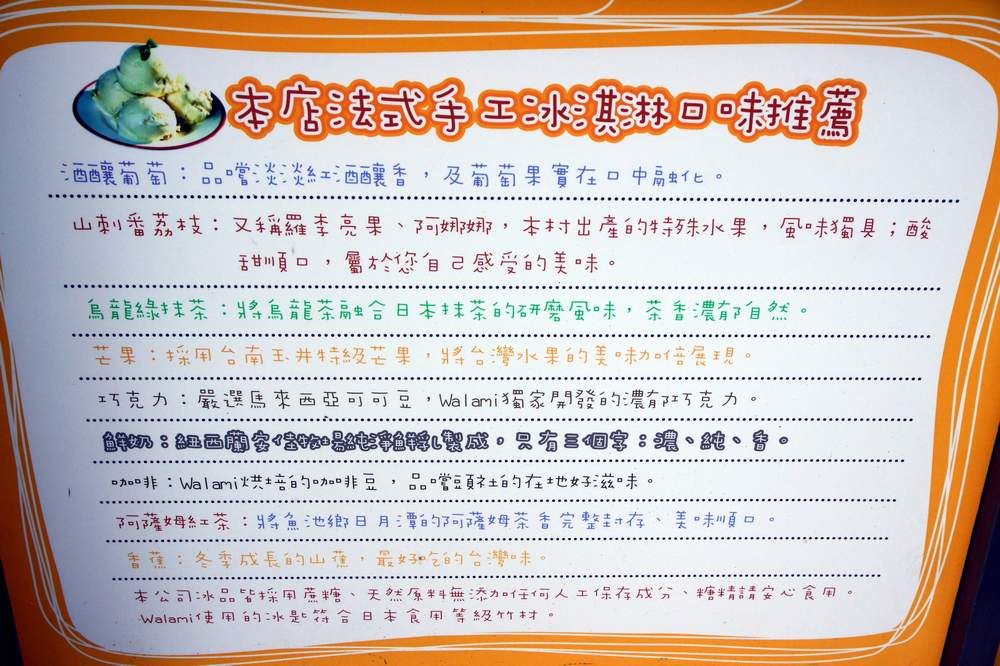 本店法式手工冰淇淋口味推薦
酒釀葡萄：品嚐淡淡紅酒釀香，及葡萄果實在口中融化。
山刺番荔枝：又稱羅李亮果、阿娜娜，本村出產的特殊水果，風味獨具；酸
甜順口，屬於您自己感受的美味。
烏龍綠抹茶：將烏龍茶融合日本抹茶的研磨風味，茶香濃郁自然。
芒果：採用台南玉井特級芒果，將台灣水果的美味加倍展現。
巧克力：嚴選馬來西亞可可豆，Walami獨家開發的濃郁巧克力。
鮮奶：紐西蘭安佳牧場純淨鮮乳製成，只有三個字：濃、純、香。
咖啡：Walami烘培的咖啡豆，品嚐頭社的在地好滋味。
阿薩姆紅茶：將魚池鄉日月潭的阿薩姆茶香完整封存、美味順口。
香蕉：冬季成長的山蕉，最好吃的台灣味。
本公司冰品皆採用蔗糖、天然原料無添加任何人工保存成分、糖精請安心食用。
Walami使用的冰匙符合日本食用等級竹材。